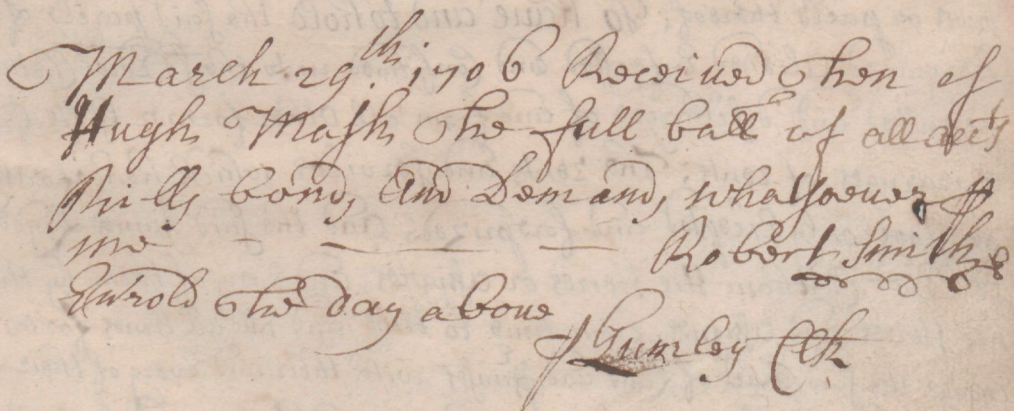 March. 29th. 1706 Received Then of
Hugh Mash The full balle of all acct's
Bills bonds And Demands whatsoever p
me Robert Smith
Enrold The day above
p Gumley Clk